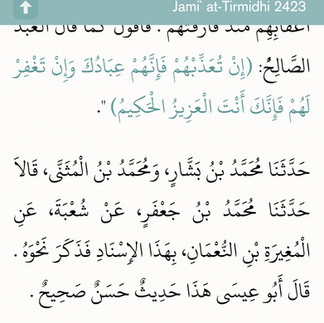 Jami` at-Tirmidhi 2423
أعقابهم منذ فارقتهم . فأقول كما قال العبد
الصَّالِحُ: ‏(‏إِنْ تُعَذِّبْهُمْ فَإِنَّهُمْ عِبَادُكَ وَإِنْ تَغْفِرْ
لَهُمْ فَإِنَّكَ أَنْتَ الْعَزِيزُ الْحَكِيمُ ‏)‏ ‏"‏.
حَدَّثَنَا مُحَمَّدُ بْنُ بَشَّارٍ، وَمُحَمَّدُ بْنُ الْمُثَنَّى، قَالاَ
حَدَّثَنَا مُحَمَّدُ بْنُ جَعْفَرٍ، عَنْ شُعْبَةَ، عَنِ
الْمُغِيرَةِ بْنِ النُّعْمَانِ، بِهَذَا الإِسْنَادِ فَذَكَرَ نَحْوَهُ .
قَالَ أَبُو عِيسَى هَذَا حَدِيثٌ حَسَنٌ صَحِيحٌ .